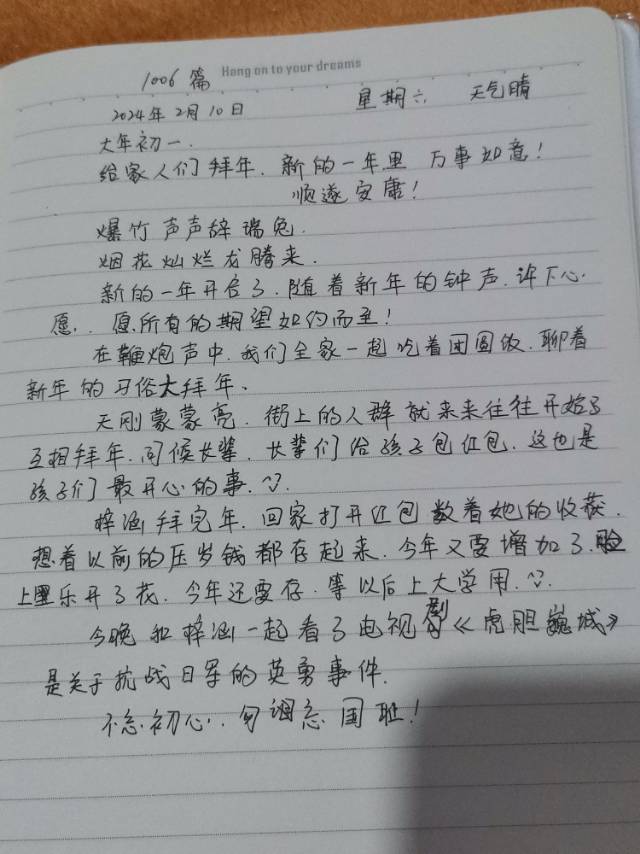 Hang on to your dreams
1006篇
2024年2月10日 星期六 天气晴
大年初一.
给家人们拜年.新的一年里 万事如意!
顺遂安康!
爆竹声声辞瑞兔.
烟花灿烂龙腾来.
新的一年开启了.随着新年的钟声.许下心
愿..愿所有的期望如约而至!
在鞭炮声中.我们全家一起吃着团圆饭.聊着
新年的习俗大拜年、
天刚蒙蒙亮.街上的人群就来来往往开始了
互相拜年.问候长辈.长辈们给孩子包红包.这也是
孩子们最开心的事.
梓涵拜完年.回家打开红包数着她的收获.
想着以前的压岁钱都存起来.今年又要增加了.脸
上里乐开了花.今年还要存.等以后上大学用.
今晚和梓涵一起看了电视剧《虎胆巍城》
是关于抗战日军的英勇事件.
不忘初心..勿 忘国耻!